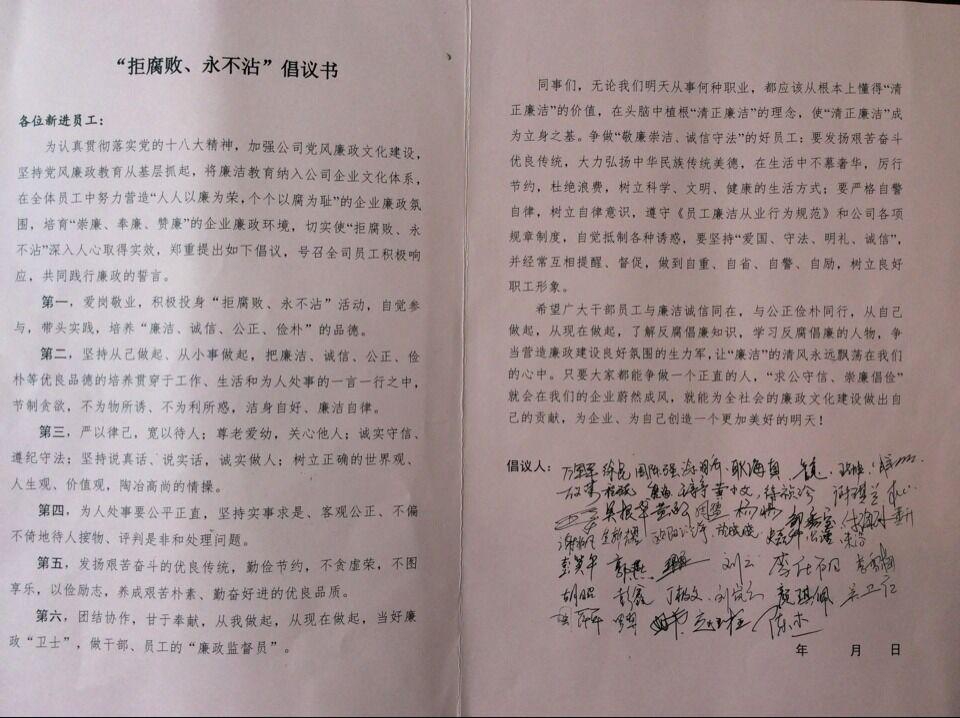 “拒腐败、永不沾”倡议书
各位新进员工：
为认真贯彻落实党的十八大精神，加强公司党风廉政文化建设，
坚持党风廉政教育从基层抓起，将廉洁教育纳入公司企业文化体系，
在全体员工中努力营造“人人以廉为荣，个个以腐为耻”的企业廉政氛
围，培育“崇廉、奉廉、赞廉”的企业廉政环境，切实使“拒腐败、永
不沾”深入人心取得实效，郑重提出如下倡议，号召全司员工积极响
应，共同践行廉政的誓言。
第一，爱岗敬业，积极投身“拒腐败、永不沾”活动，自觉参
与，带头实践，培养“廉洁、诚信、公正、俭朴”的品德。
第二，坚持从己做起、从小事做起，把廉洁、诚信、公正、俭
朴等优良品德的培养贯穿于工作、生活和为人处事的一言一行之中，
节制贪欲，不为物所诱、不为利所惑，洁身自好、廉洁自律。
第三，严以律己，宽以待人；尊老爱幼，关心他人；诚实守信、
遵纪守法；坚持说真话、说实话，诚实做人；树立正确的世界观、
人生观、价值观，陶冶高尚的情操。
第四，为人处事要公平正直，坚持实事求是、客观公正、不偏
不倚地待人接物、评判是非和处理问题。
第五，发扬艰苦奋斗的优良传统，勤俭节约，不贪虚荣，不图
享乐，以俭励志，养成艰苦朴素、勤奋好进的优良品质。
第六，团结协作，甘于奉献，从我做起，从现在做起，当好廉
政“卫士”，做干部、员工的“廉政监督员”。
同事们，无论我们明天从事何种职业，都应该从根本上懂得“清
正廉洁”的价值，在头脑中植根“清正廉洁”的理念，使“清正廉洁”成
为立身之基。争做“敬廉崇洁、诚信守法”的好员工：要发扬艰苦奋斗
优良传统，大力弘扬中华民族传统美德，在生活中不慕奢华，厉行
节约，杜绝浪费，树立科学、文明、健康的生活方式；要严格自警
自律，树立自律意识，遵守《员工廉洁从业行为规范》和公司各项
规章制度，自觉抵制各种诱惑，要坚持“爱国、守法、明礼、诚信”，
并经常互相提醒、督促，做到自重、自省、自警、自励，树立良好
职工形象。
希望广大干部员工与廉洁诚信同在，与公正俭朴同行，从自己
做起，从现在做起，了解反腐倡廉知识，学习反腐倡廉的人物，争
当营造廉政建设良好氛围的生力军，让“廉洁”的清风永远飘荡在我们
的心中。只要大家都能争做一个正直的人，“求公守信、崇廉倡俭”
就会在我们的企业蔚然成风，就能为全社会的廉政文化建设做出自
己的贡献，为企业、为自己创造一个更加美好的明天！
倡议人：
刘云
胡聪 彭鑫
陈杰
年 月 日